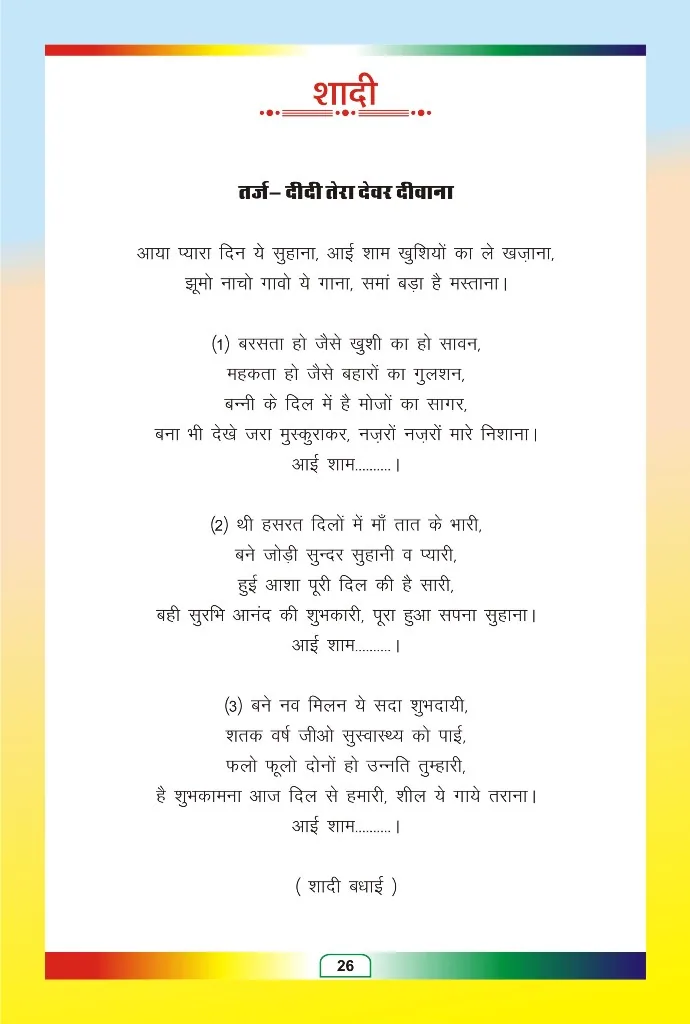 शादी
तर्ज– दीदी तेरा देवर दीवाना
आया प्यारा दिन ये सुहाना, आई शाम खुशियों का ले खज़ाना,
झूमो नाचो गावो ये गाना, समां बड़ा है मस्ताना।
(1) बरसता हो जैसे खुशी का हो सावन,
महकता हो जैसे बहारों का गुलशन,
बन्नी के दिल में है मोजों का सागर,
बना भी देखे जरा मुस्कुराकर, नज़रों नज़रों मारे निशाना।
आई शाम..........।
(2) थी हसरत दिलों में माँ तात के भारी,
बने जोड़ी सुन्दर सुहानी व प्यारी,
हुई आशा पूरी दिल की है सारी,
बही सुरभि आनंद की शुभकारी, पूरा हुआ सपना सुहाना।
आई शाम..........।
(3) बने नव मिलन ये सदा शुभदायी,
शतक वर्ष जीओ सुस्वास्थ्य को पाई,
फलो फूलो दोनों हो उन्नति तुम्हारी,
है शुभकामना आज दिल से हमारी, शील ये गाये तराना।
आई शाम..........।
( शादी बधाई )
26